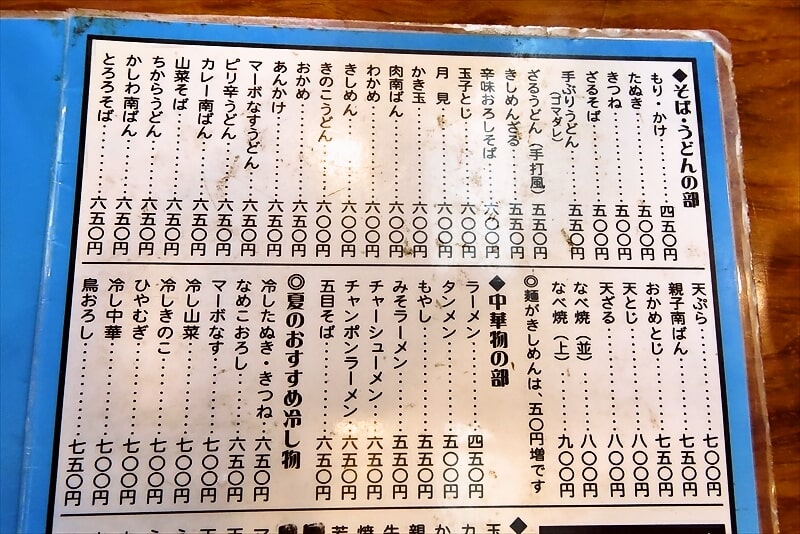 ◆そば・うどんの部
もり・かけ……四五〇円
たぬき……五〇〇円
きつね……五〇〇円
ざるそば……五〇〇円
手ぶりうどん（ゴマダレ）……五五〇円
ざるうどん（手打風）五五〇円
きしめんざる……五五〇円
辛味おろしそば……六〇〇円
玉子とじ……六〇〇円
月見……六〇〇円
かき玉……六〇〇円
肉南ばん……六〇〇円
わかめ……六〇〇円
きしめん……六〇〇円
きのこうどん……六〇〇円
おかめ……六五〇円
あんかけ……六五〇円
マーボなすうどん……六五〇円
ピリ辛うどん……六五〇円
カレー南ばん……六五〇円
山菜そば……六五〇円
ちからうどん……六五〇円
かしわ南ばん……六五〇円
とろろそば……六五〇円
天ぷら……七〇〇円
親子南ばん……七五〇円
おかめとじ……七五〇円
天とじ……八〇〇円
天ざる……八〇〇円
なべ焼（並）……八〇〇円
なべ焼（上）……九〇〇円
◎麺がきしめんは、五〇円増です
◆中華物の部
ラーメン……四五〇円
タンメン……五〇〇円
もやし……五五〇円
みそラーメン……五五〇円
チャーシューメン……六五〇円
チャンポンラーメン……六五〇円
五目そば……六五〇円
◎夏のおすすめ冷し物
冷したぬき・きつね……六五〇円
なめこおろし……六五〇円
マーボなす……七〇〇円
冷し山菜……七〇〇円
冷しきのこ……七〇〇円
ひやむぎ……七〇〇円
冷し中華……七〇〇円
鳥おろし……七五〇円